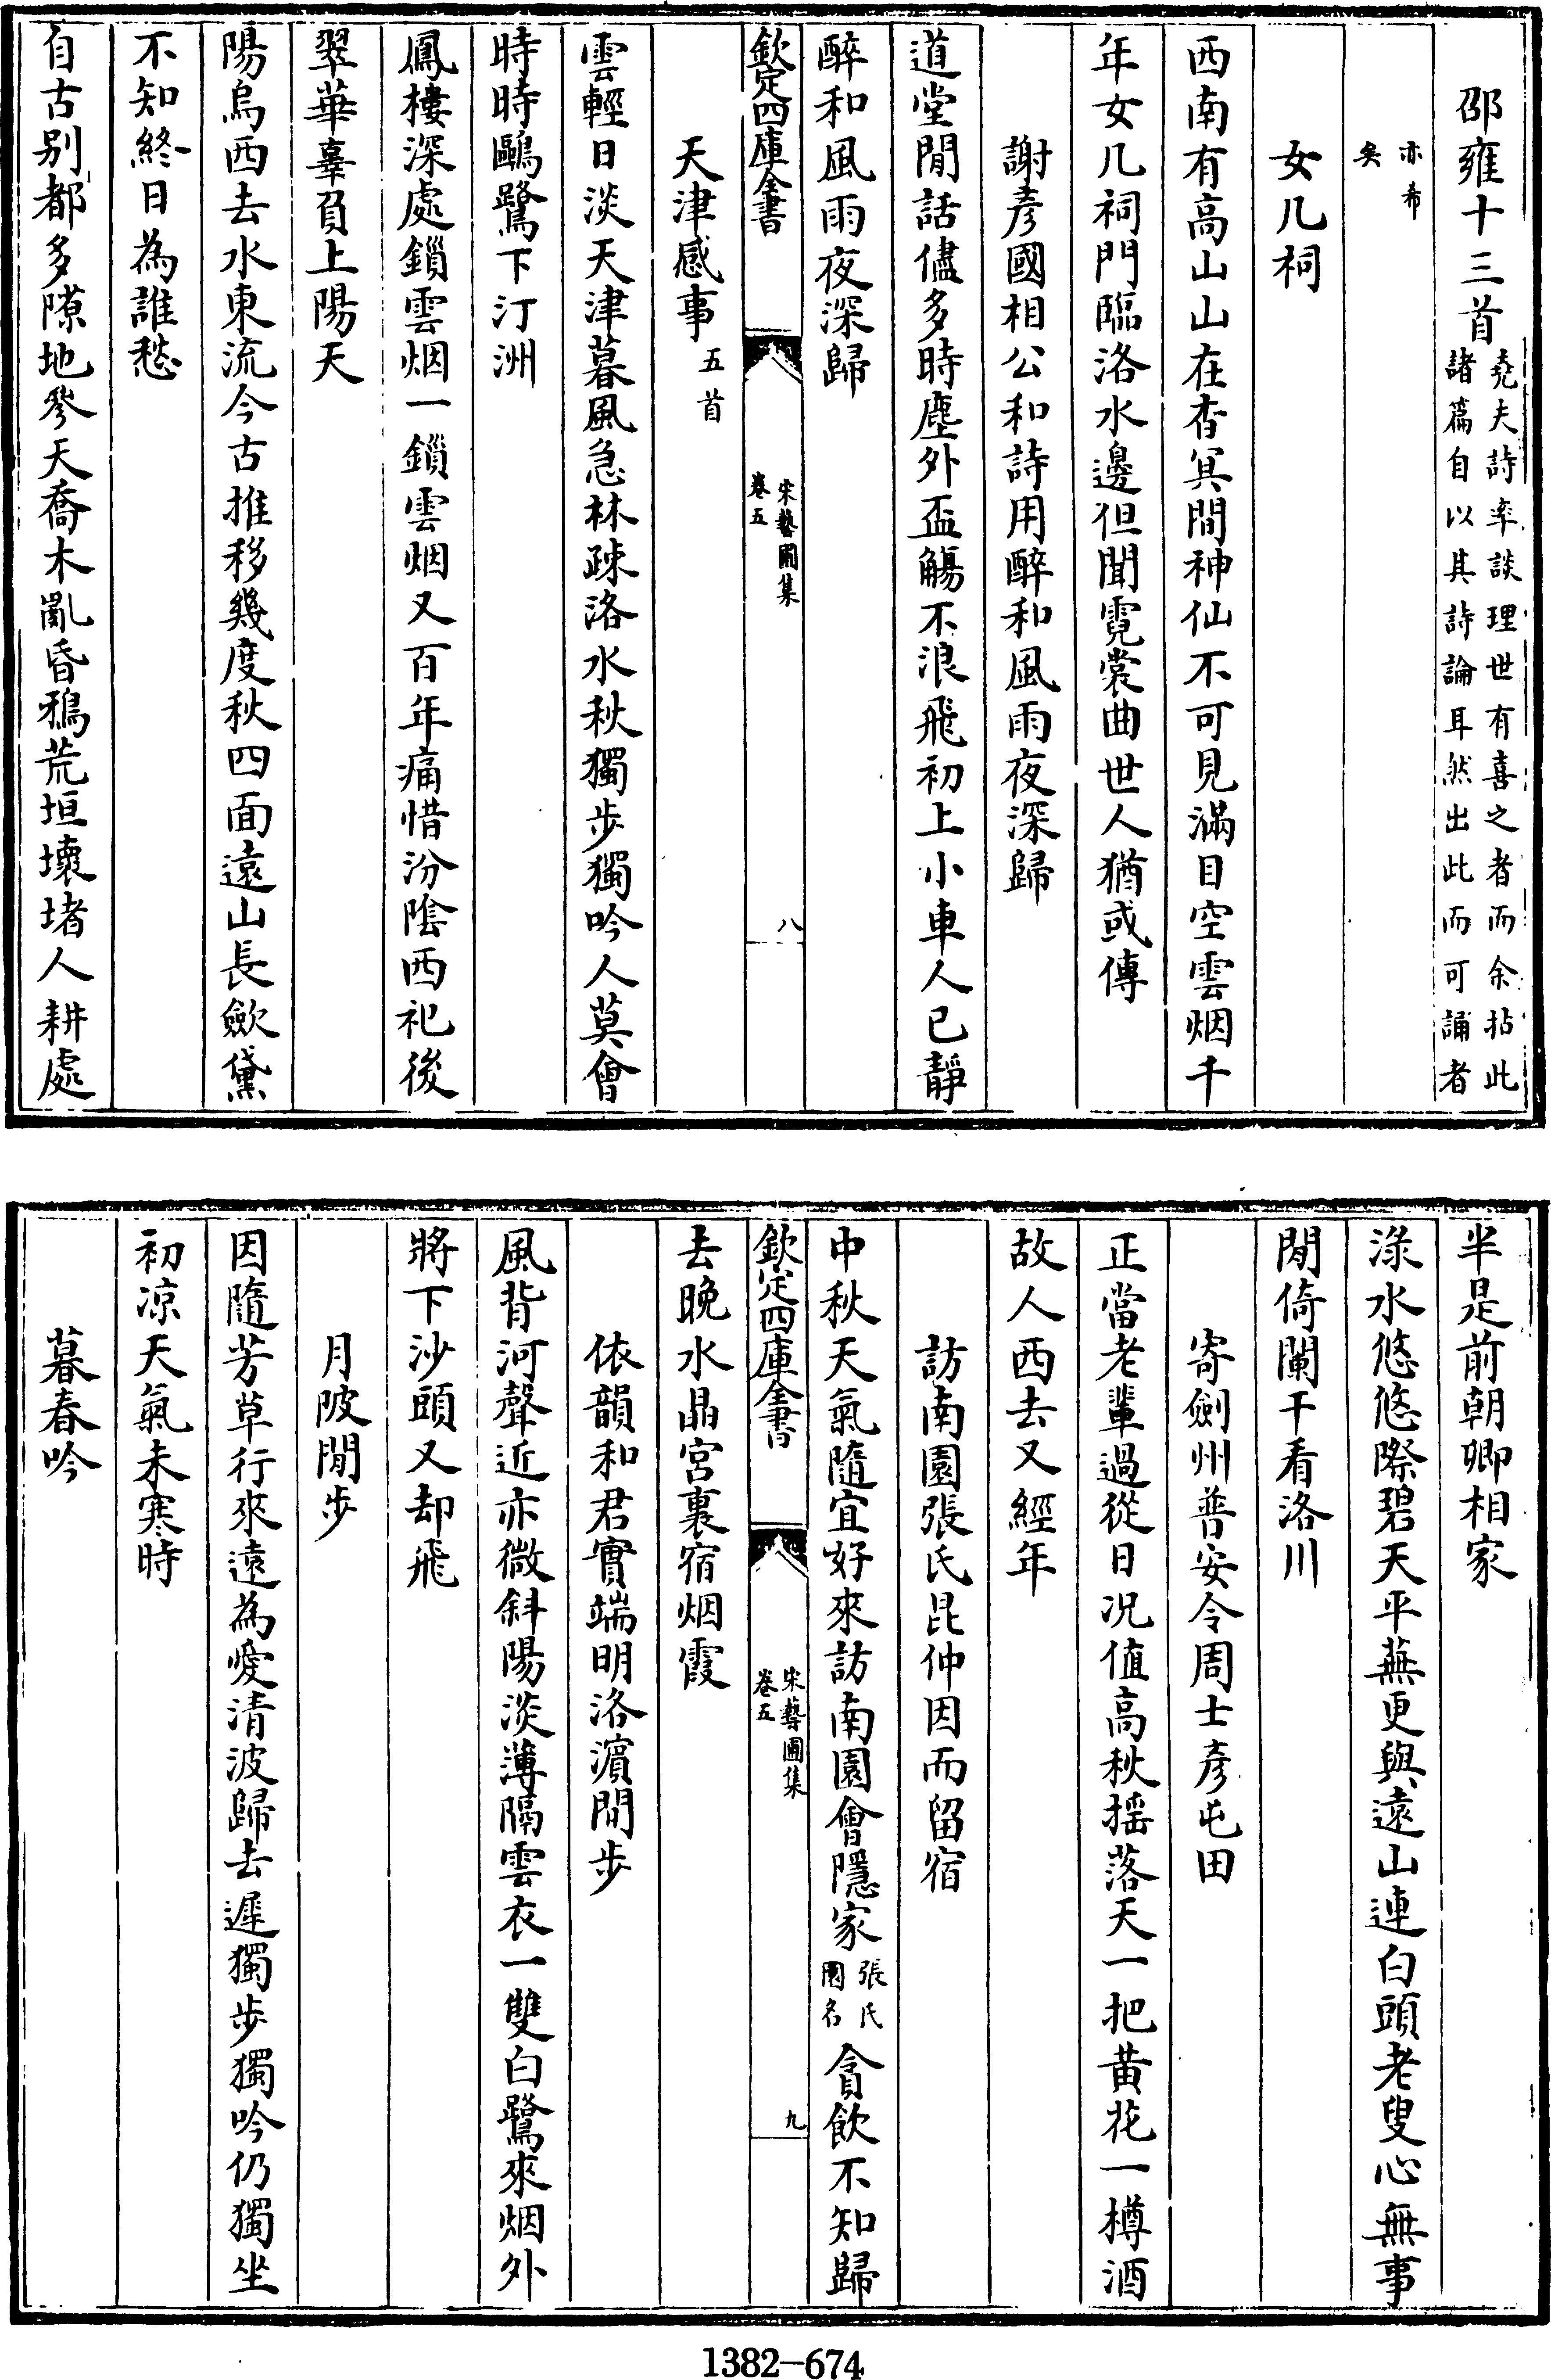 邵雍十三首堯夫詩率談理世有喜之者而余拈此
諸篇自以其詩論耳然出此而可誦者
亦希
矣
女几祠
西南有高山山在杳冥間神仙不可見滿目空雲烟千
年女几祠門臨洛水邊但聞霓裳曲世人猶或傳
謝彥國相公和詩用醉和風雨夜深歸
道堂閒話儘多時塵外盃觴不浪飛初上小車人已靜
醉和風雨夜深歸
欽定四庫全書
宋藝圃集
卷五
八
天津感事五首
雲輕日淡天津暮風急林疎洛水秋獨步獨吟人莫會
時時鷗鷺下汀洲
鳳樓深處鎖雲烟一鎖雲烟又百年痛惜汾隂西祀後
翠華辜負上陽天
陽烏西去水東流今古推移幾度秋四面遠山長歛黛
不知終日為誰愁
自古别都多隙地參天喬木亂昏鴉荒垣壞堵人耕處
半是前朝卿相家
淥水悠悠際碧天平蕪更與遠山連白頭老叟心無事
閒倚闌干看洛川
寄劍州普安令周士彥屯田
正當老輩過從日况值高秋揺落天一把黄花一樽酒
故人西去又經年
訪南園張氏昆仲因而留宿
中秋天氣隨宜好來訪南園會隱家張氏
園名貪飲不知歸
去晚水晶宮裏宿烟霞
欽定四庫全書
宋藝圃集
卷五
九
依韻和君實端明洛濵閒步
風背河聲近亦微斜陽淡薄隔雲衣一雙白鷺來烟外
將下沙頭又却飛
月陂閒步
因隨芳草行來遠為愛清波歸去遲獨步獨吟仍獨坐
初凉天氣未寒時
暮春吟
1382-674